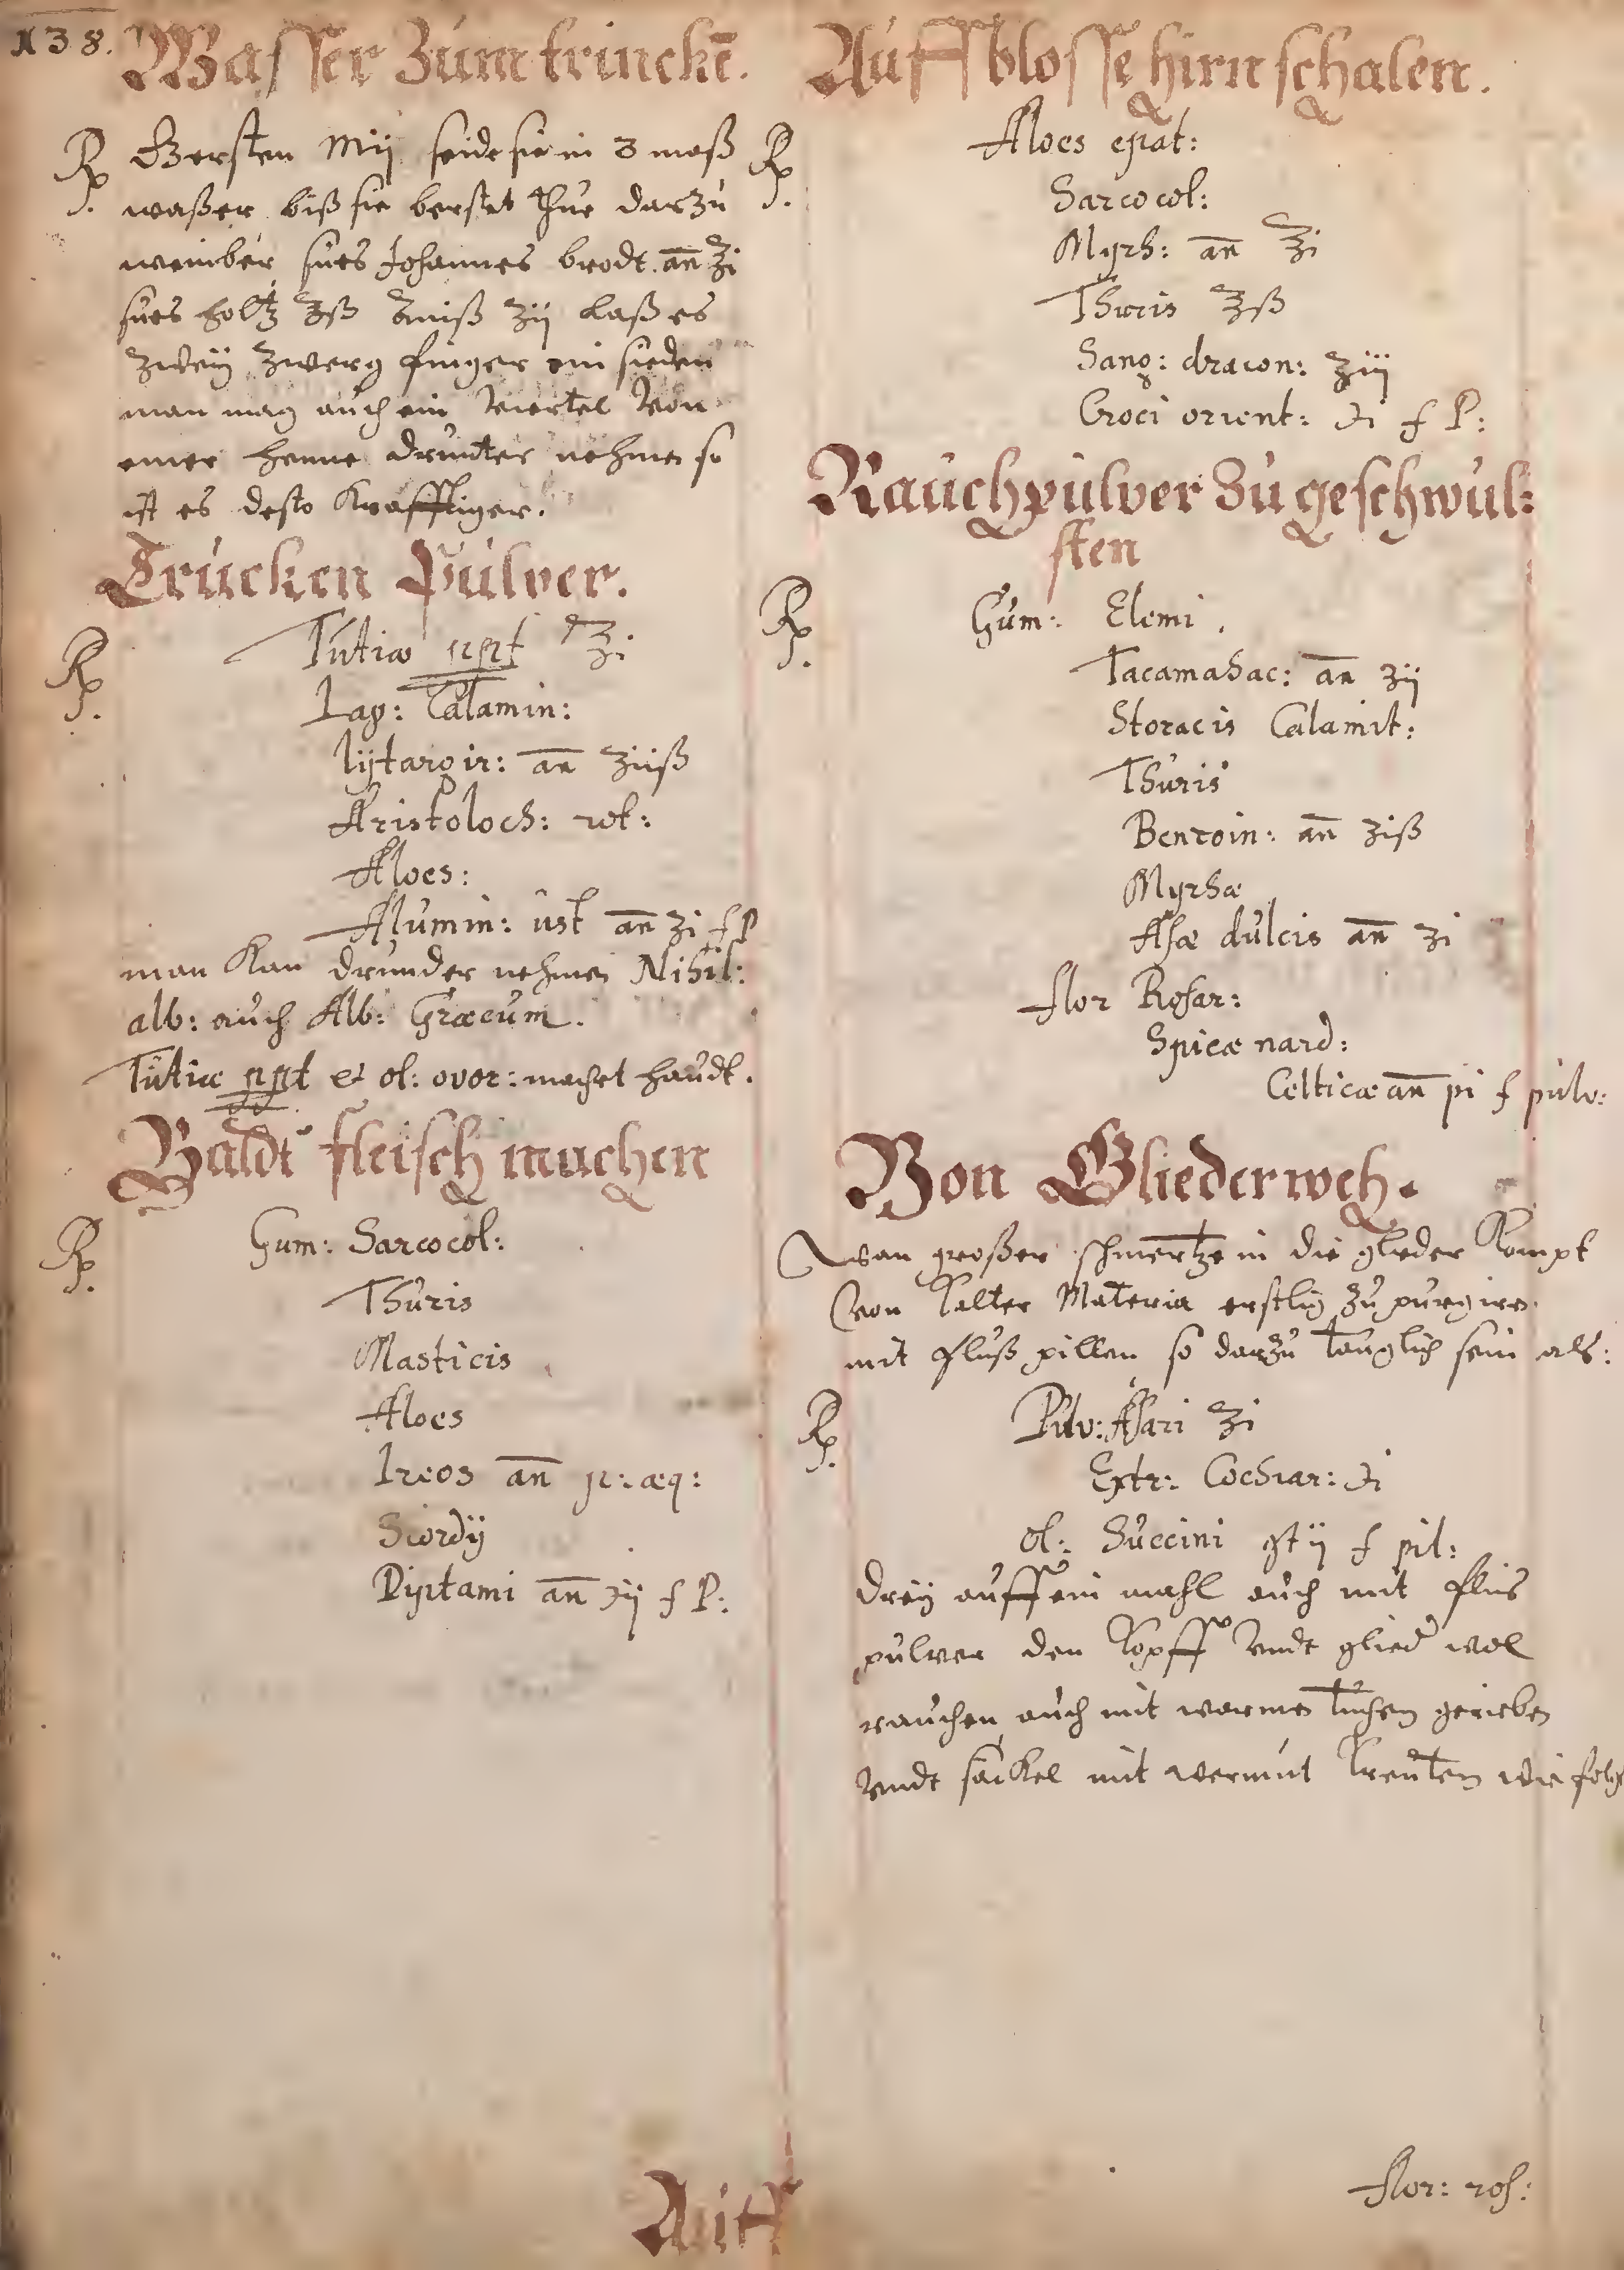 138.
Wasser Zum trincke̅.
Rp. Gersten Mij seide sie in 3 maß
waßer biß sie berstet thue darzu
weinber sues Johannes brodt an̅ ℥i
sues holtz ℥ß Aniß ʒij laß es
zweij zwerg finger ein sieden
man mag auch ein viertel von
einer henne drunter nehmen so
ist es desto Krafftiger.
Trucken Pulver.
Rp. Tutiæ ppt ℥i
Lap: Calamin:
lijtargir: an̅ ʒiiß
Aristoloch: rot:
Aloes:
Alumin: ust an̅ ʒi f P
man Kan drunder nehmen Nihil:
alb: auch Alb: Græcum.
Tutiæ ppt et ol: ovor: machet haudt.
Baldt fleisch machen
Rp. Gum: Sarcocol:
Thuris
Masticis
Aloes
Ireos an̅ p: æq:
Scordij
Diptami an̅ ℈ij f P:
Auff
Auff blosse hirn schalen.
Rp. Aloes epat:
Sarcocol:
Myrh: an̅ ℥i
Thuris ℥ß
Sang: dracon: ʒiij
Croci orient: ℈i f P:
Rauchpulver Zu geschwul:
sten
Rp. Gum: Elemi.
Tacamahac: an̅ ʒij
Storacis Calamit:
Thuris
Benzoin: an̅ ʒiß
Myrhæ
Asæ dulcis an̅ ʒi
flor Rosar:
Spicæ nard:
Celticæ an̅ pi f pulv:
Von Gliederweh.
wan großer schmertze in die glieder Kompt
von Kalter Materia erstlig zu purgiren
mit fluß pillen so darzu tauglich sein als:
Rp. Pulv: Asari ℥i
Extr: Cochiar: ℈i
ol: Succini gt ij f pil:
Dreij auff ein mahl auch mit flus
pulver den Kopff undt glied wol
rauchen auch mit warmen tuchen gerieben
undt säckel mit wermut Kreutern wie folgt
flor: ros: